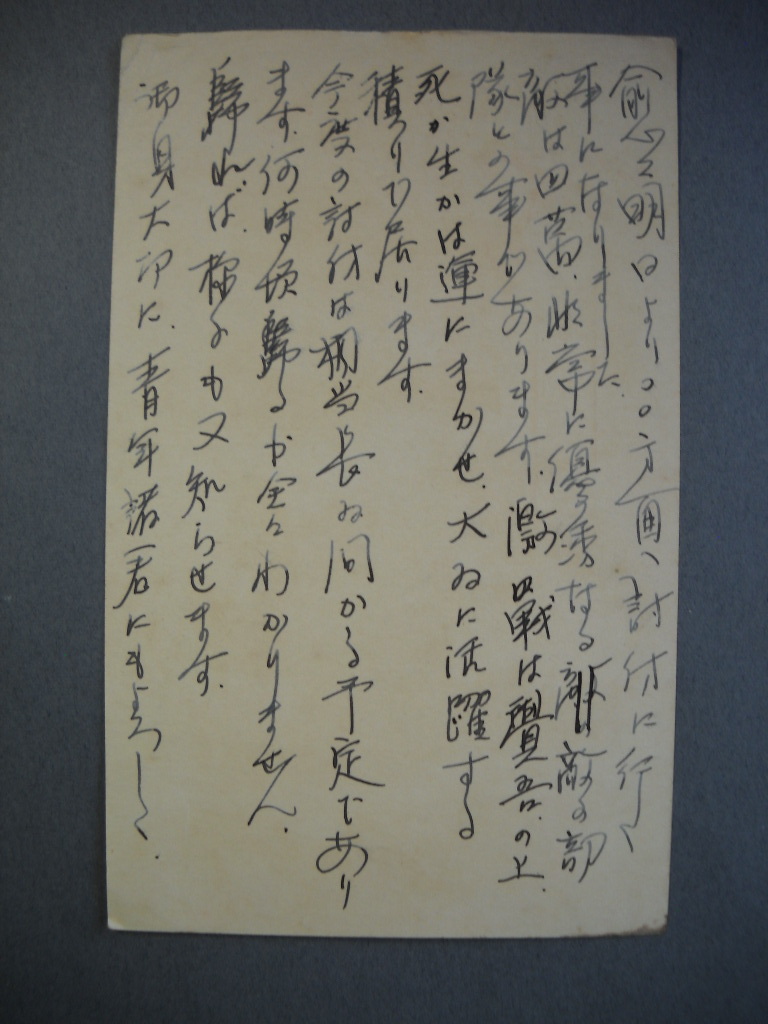 愈々明日より〇〇方面へ討伐に行く
事になりました
敵は四萬、非常に優秀なる敵の部
隊との事であります。激戦は覺吾の上、
死か生かは運にまかせ、大ゐに活躍する
積りで居ります。
今度の討伐は相当長ゐ間かゝる予定であり
ます、何時頃歸るか全々わかりません、
歸れば、様子も又知らせます。
御身大切に、青年諸君にもよろしく、